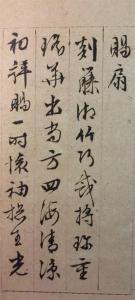 賜扇
剡藤湘竹巧裁將珍重
瑤華出尚方四海清涼
初拜賜一時懷袖光